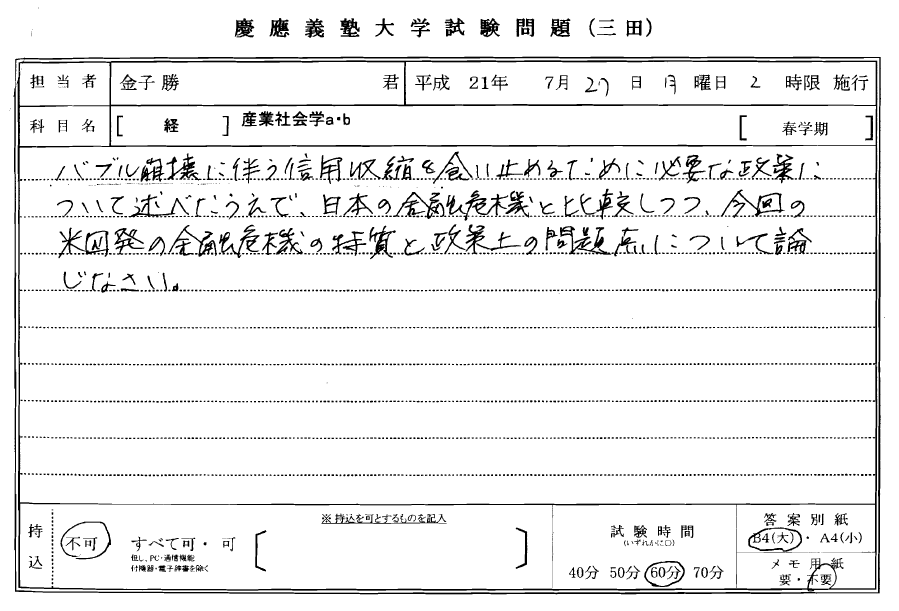 慶應義塾大学試験問題(三田)
担当者 金子勝 君 平成 21年 7月 27日 月曜日 2 時限 施行
科目名 [ 経 ] 産業社会学a・b [ 春学期 ]
バブル崩壊に伴う信用収縮を食い止めるために必要な政策に
ついて述べたうえで、日本の金融危機と比較しつつ、今回の
米国発の金融危機の特質と政策上の問題点について論
じなさい。
持込 不可 すべて可・可
但し、PC・通信機能
付機器・電子辞書を除く
※持込を可とするものを記入
試験時間
(いずれかに○)
40分 50分 60分 70分
答案別紙
B4(大)・A4(小)
メモ用紙
要・不要